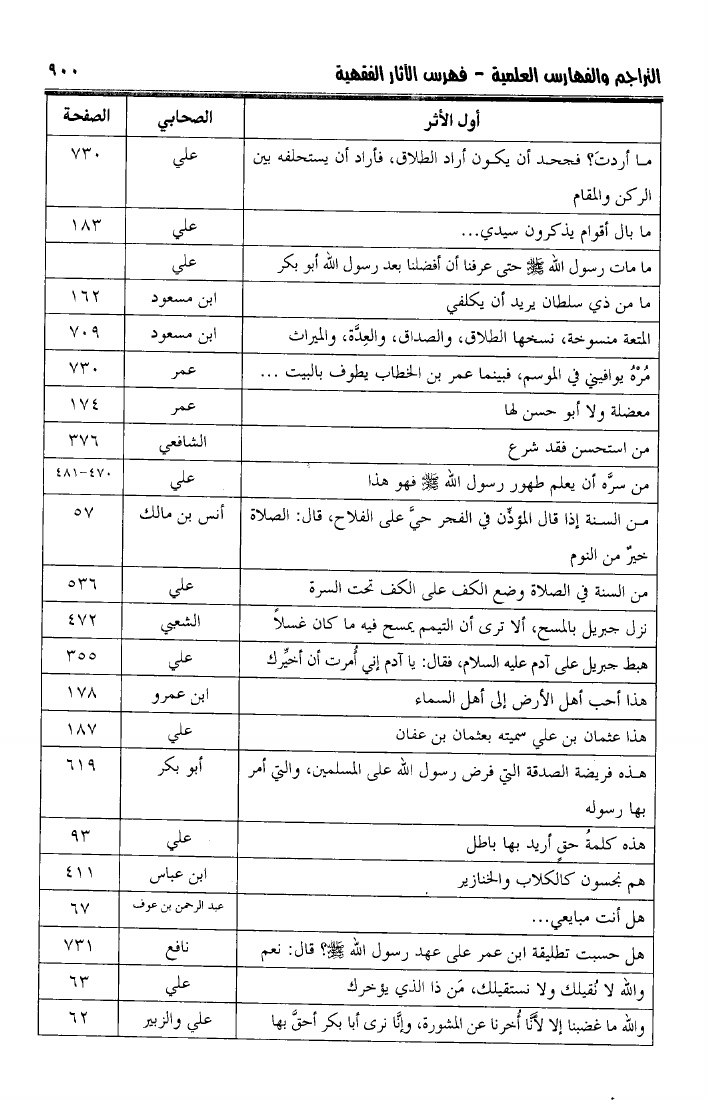 التراجم والفهارس العلمية - فهرس الآثار الفقهية ٩٠٠
أول الأثر الصحابي الصفحة
مـا أردتَ؟ فجحـد أن يكـون أراد الطلاق، فأراد أن يستحلفه بين علي ٧٣٠
الركن والمقام
ما بال أقوام يذكرون سيدي... علي ١٨٣
ما مات رسول الله ﷺ حتى عرفنا أن أفضلنا بعد رسول الله أبو بكر علي
ما من ذي سلطان يريد أن يكلفي ابن مسعود ١٦٢
المتعة منسوخة، نسخها الطلاق، والصداق، والعِدَّة، والميراث ابن مسعود ٧٠٩
مُرْهُ يوافيني في الموسم، فبينما عمر بن الخطاب يطوف بالبيت ... عمر ٧٣٠
معضلة ولا أبو حسن لها عمر ١٧٤
من استحسن فقد شرع الشافعي ٣٧٦
من سرَّه أن يعلم طهور رسول الله ﷺ فهو هذا علي ٤٧٠-٤٨١
مـن السـنة إذا قال المؤذِّن في الفجر حيَّ على الفلاح، قال: الصلاة أنس بن مالك ٥٧
خيرٌ من النوم
من السنة في الصلاة وضع الكف على الكف تحت السرة علي ٥٣٦
نزل جبريل بالمسح، ألا ترى أن التيمم يمسح فيه ما كان غسلاً الشعبي ٤٧٢
هبط جبريل على آدم عليه السلام، فقال: يا آدم إني أُمرت أن أخيِّرك علي ٣٥٥
هذا أحب أهل الأرض إلى أهل السماء ابن عمرو ١٧٨
هذا عثمان بن علي سميته بعثمان بن عفان علي ١٨٧
هـذه فريضة الصدقة التي فرض رسول الله على المسلمين، والتي أمر أبو بكر ٦١٩
بها رسوله
هذه كلمةُ حقٍ أريد بها باطل علي ٩٣
هم نجسون كالكلاب والخنازير ابن عباس ٤١١
هل أنت مبايعي... عبد الرحمن بن عوف ٦٧
هل حسبت تطليقة ابن عمر على عهد رسول الله ﷺ؟ قال: نعم نافع ٧٣١
والله لا نُقيلك ولا نستقيلك، مَن ذا الذي يؤخرك علي ٦٣
والله ما غضبنا إلا لأنَّا أُخرنا عن المشورة، وإنَّا نرى أبا بكر أحقَّ بها علي والزبير ٦٢